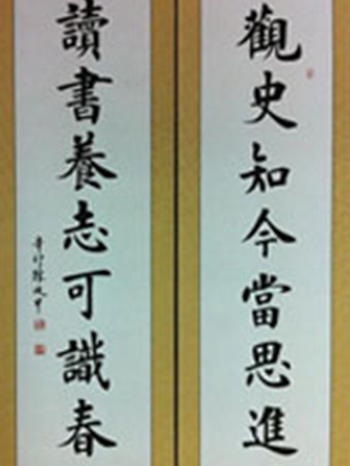 觀史知今當思進
讀書養志可識春
辛卯